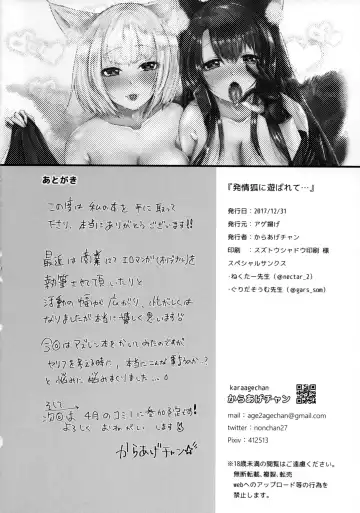 あとがき
この度は私の本を手に取って
下さり、本当にありがとうございます!!
最近は商業にてエロマンガ(ホロカバ)を
執筆させて頂いたりと
活動の幅が広がり、忙しくは
なりましたが本当に嬉しく思います
今回はアズレン本をかいてみたのですが
セリフを考える時に、本当にこんな事言うのか…?
と悩みに悩みまくりました…。
そして
次回は4月のコミ1に参加予定です!
よろしくおねがいします
からあげチャン☆
『発情狐に遊ばれて…』
発行日:2017/12/31
発行:アゲ揚げ
発行者:からあげチャン
印刷:スズトウシャドウ印刷 様
スペシャルサンクス
・ねくたー先生(@nectar_2)
・ぐりだそうむ先生(@gars_som)
karaagechan
からあげチャン
mail : age2agechan@gmail.com
twitter : nonchan27
Pixiv : 412513
※18歳未満の閲覧はご遠慮ください。
無断転載、複製、転売
webへのアップロード等の行為を
禁止します。